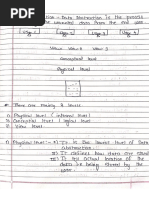 Data Abstraction is the process
the unwanted data from the end user
View 1 View 2 View 3
Conceptual level
Physical level
There are mainly 3 levels
1) Physical level (internal level)
2) Conceptual level (logical level)
3) View level
1) Physical level → It is the lowest level of Data
abstraction.
It defines how data are stored
It tell actual location of the
data is being stored by the
user